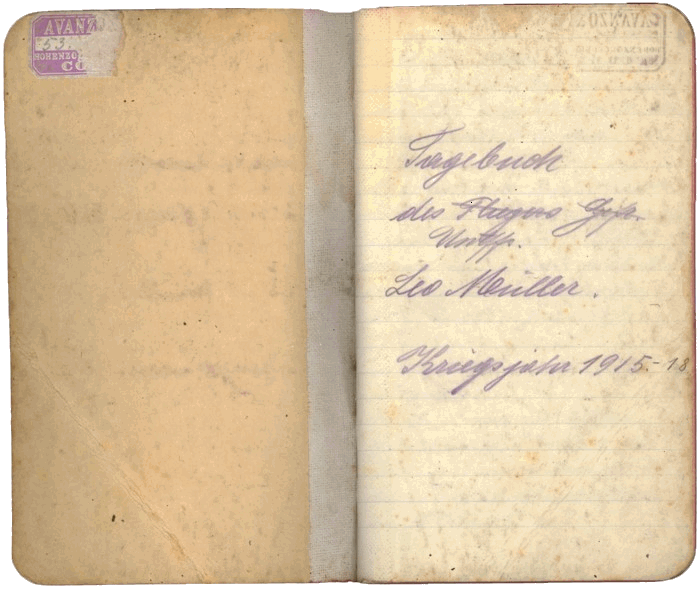 AVANZ
53.
HOHENZO
CO
Tagebuch
des Fliegers Gefr.
Untffz.
Leo Müller.
Kriegsjahr 1915-18